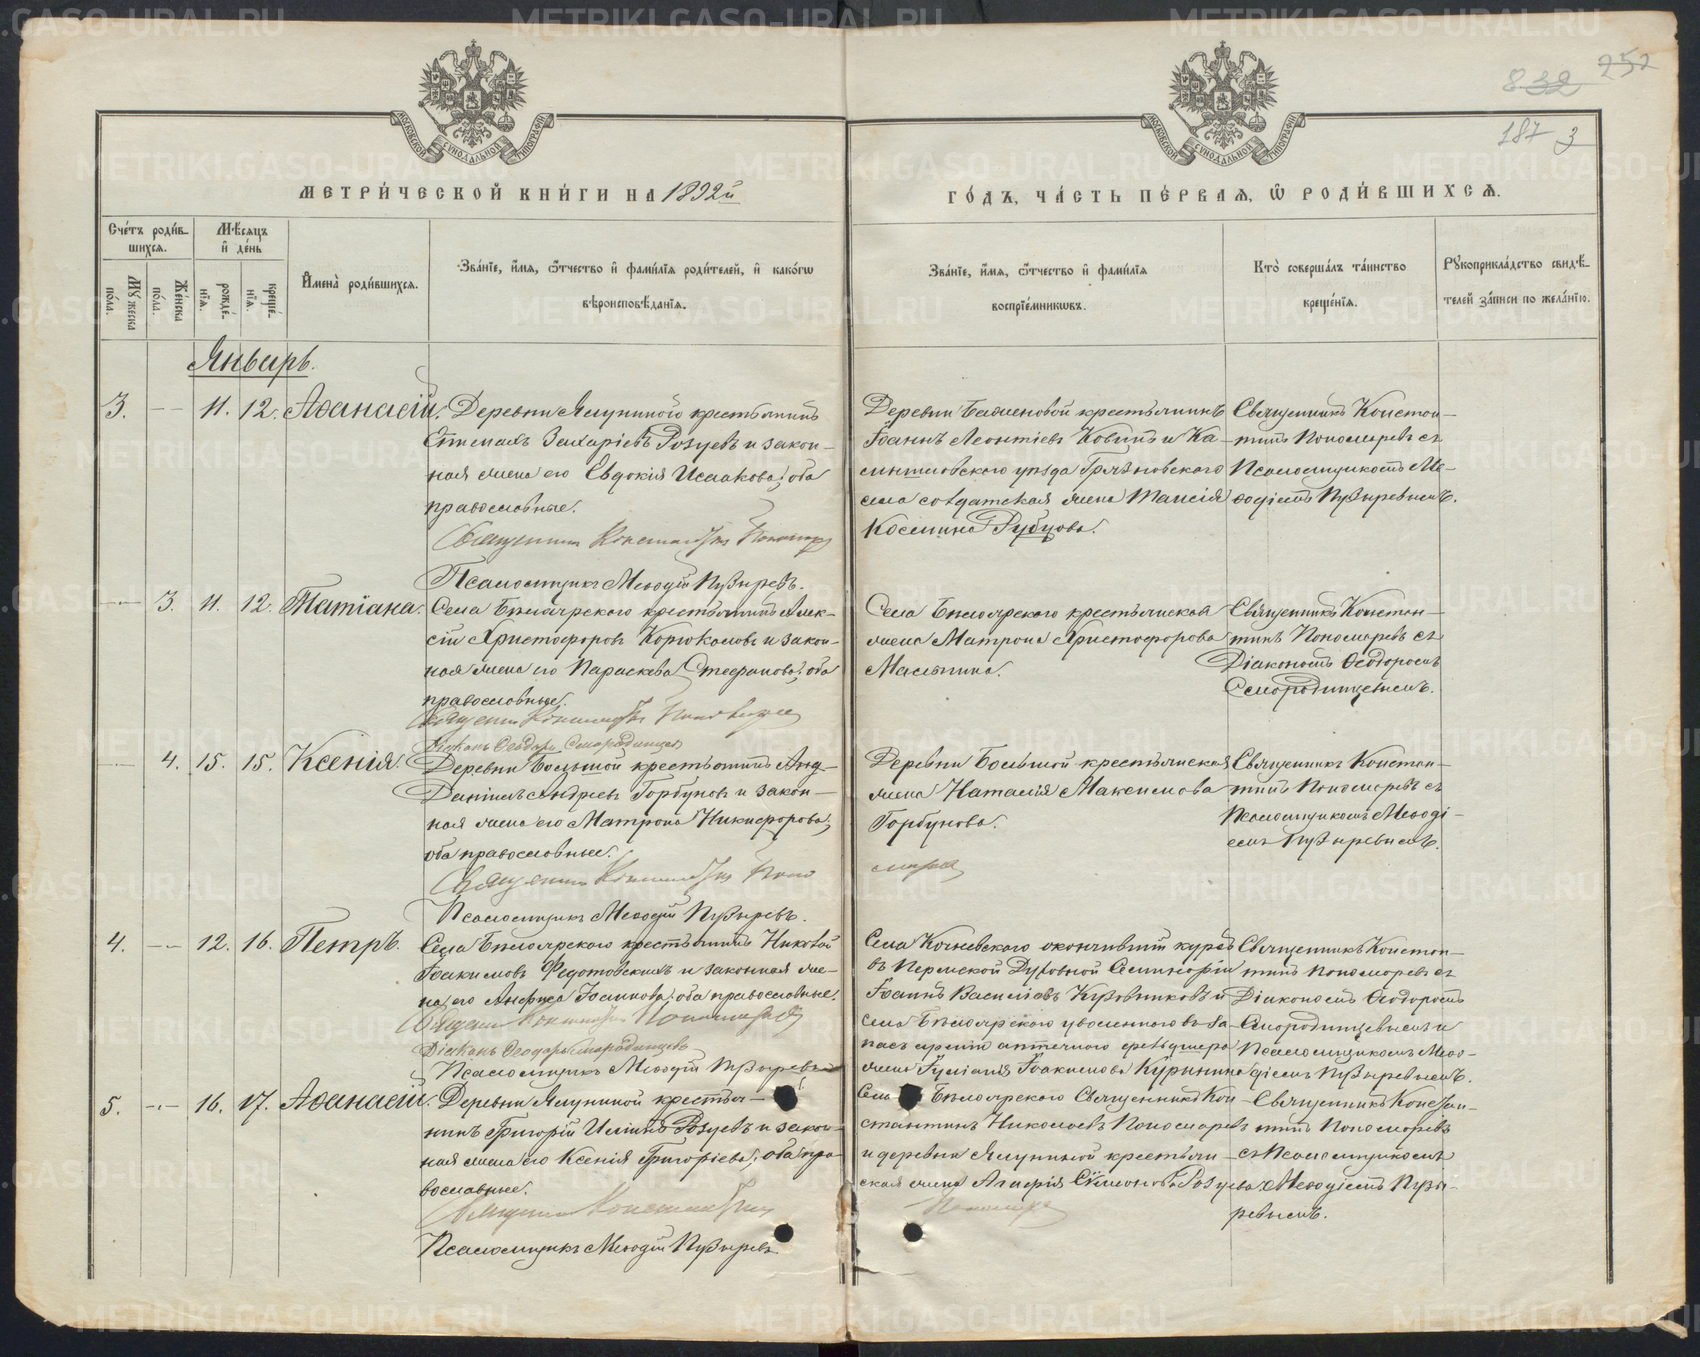 МЕТРИ́ЧЕСКОЙ КНИ́ГИ НА 1892й
ГО́ДЪ, ЧА́СТЬ ПЕ́РВАЯ, Ѽ РОДИ́ВШИХСЯ.
832 252
187 3
МОСКОВСКОЙ СѴНОДАЛЬНОЙ ТИПОГРАФІИ
МОСКОВСКОЙ СѴНОДАЛЬНОЙ ТИПОГРАФІИ
Сче́тъ роди́в-
шихся.
Мѣ́сяцъ
и҆ де́нь
Мꙋ́жеска по́ла.
Же́нска по́ла.
рожде́-
нїя.
креще́-
нїя.
И҆мена̀ роди́вшихся.
Зва́нїе, и҆́мя, ѻ҆́тчество и҆ фами́лїя роди́телей, и҆ како́гѡ
вѣроисповѣ́данїя.
Зва́нїе, и҆́мя, ѻ҆́тчество и҆ фами́лїя
воспрїе́мникѡвъ.
Кто̀ соверша́лъ та́инство
креще́нїя.
Рꙋкоприкла́дство свидѣ́-
телей за́писи по жела́нїю.
Январь.
3. — 11. 12. Аѳанасій.
Деревни Ялуниной крестьянинъ
Захаріевъ Розуевъ и закон-
ная жена его Евдокія Исаакова; оба
православные.
Священникъ Константинъ Пономар
Псаломщикъ Меѳодій Пузыревъ.
Деревни Баженовой крестьянинъ
Іоаннъ Леонтіевъ Ковинъ и Ка-
мышловскаго уѣзда Грязновскаго
села солдатская жена Таисія
Косьмина Рубцова.
Священникъ Констан-
тинъ Пономаревъ съ
Псаломщикомъ Ме-
ѳодіемъ Пузыревымъ.
— 3. 11. 12. Татіана.
Села Бѣлоярскаго крестьянинъ Алек-
сій Христофоровъ и закон-
ная жена его Параскева Стефанова; оба
православные.
Священникъ Константинъ Пономарев
Діаконъ Ѳеодоръ Смородинцев
Села Бѣлоярскаго крестьянская
жена Матрона Христофорова
Маслыгина.
Священникъ Констан-
тинъ Пономаревъ съ
Діакономъ Ѳеодоромъ
Смородинцевымъ.
— 4. 15. 15. Ксенія.
Деревни Большой крестьянинъ
Даніилъ Андреевъ Горбуновъ и закон-
ная жена его Матрона Никифорова;
оба православные.
Священникъ Константинъ Поно
марев
Псаломщикъ Меѳодій Пузыревъ.
Деревни Большой крестьянская
жена Наталія Максимова
Горбунова.
Священникъ Констан-
тинъ Пономаревъ съ
Псаломщикомъ Меѳоді-
емъ Пузыревымъ.
4. — 12. 16. Петръ.
Села Бѣлоярскаго крестьянинъ Николай
Іоакимовъ Федотовскихъ и законная же-
на его Анфуса Іоаннова; оба православные.
Священникъ Константинъ Пономаревъ
Діаконъ Ѳеодоръ Смородинцевъ
Псаломщикъ Меѳодій Пузыревъ
Села Кочневскаго окончившій курсъ
въ Пермской Духовной Семинаріи
Іоаннъ Василіевъ Кузовниковъ и
села Бѣлоярскаго уволеннаго въ за-
пасъ арміи аптечнаго фельдшера
жена Іуліанія Іоакимова
Священникъ Констан-
тинъ Пономаревъ съ
Діакономъ Ѳеодоромъ
Смородинцевымъ и
Псаломщикомъ Меѳо-
діемъ Пузыревымъ.
5. — 16. 17. Аѳанасій.
Деревни Ялуниной крестья-
нинъ Григорій Иліинъ Розуевъ и закон-
ная жена его Ксенія Григоріева; оба пра-
вославные.
Священникъ Константинъ
Пономарев
Псаломщикъ Меѳодій Пузыревъ
Села Бѣлоярскаго Священникъ Кон-
стантинъ Николаевъ Пономаревъ
и деревни Ялуниной крестьян-
ская жена Агафія Сѵмеонова Розуева
Священникъ Констан-
тинъ Пономаревъ
съ Псаломщикомъ
Меѳодіемъ Пузы-
ревымъ.
METRIKI.GASO-URAL.RU